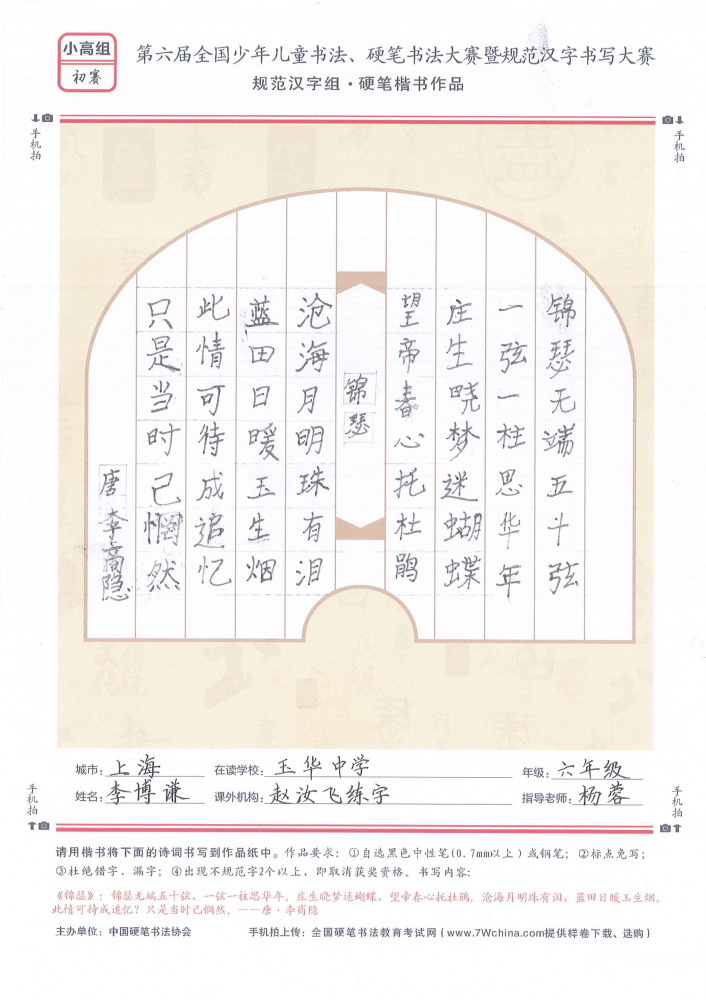 小高组
初赛
第六届全国少年儿童书法、硬笔书法大赛暨规范汉字书写大赛
规范汉字组·硬笔楷书作品
手机拍
手机拍
锦瑟无端五十弦
一弦一柱思华年
庄生晓梦迷蝴蝶
望帝春心托杜鹃
锦瑟
沧海月明珠有泪
蓝田日暖玉生烟
此情可待成追忆
只是当时已惘然
唐 李商隐
城市：上海 在读学校：玉华中学 年级：六年级
姓名：李博谦 课外机构：赵汝飞练字 指导老师：杨蓉
手机拍
手机拍
请用楷书将下面的诗词书写到作品纸中。作品要求：①自选黑色中性笔(0.7mm以上）或钢笔；②标点免写；
③杜绝错字、漏字；④出现不规范字2个以上，即取消获奖资格。书写内容：
《锦瑟》：锦瑟无端五十弦，一弦一柱思华年。庄生晓梦迷蝴蝶，望帝春心托杜鹃。沧海月明珠有泪，蓝田日暖玉生烟。
此情可待成追忆？只是当时已惘然。——唐·李商隐
主办单位：中国硬笔书法协会 手机拍上传：全国硬笔书法教育考试网（www.7Wchina.com提供样卷下载、选购）